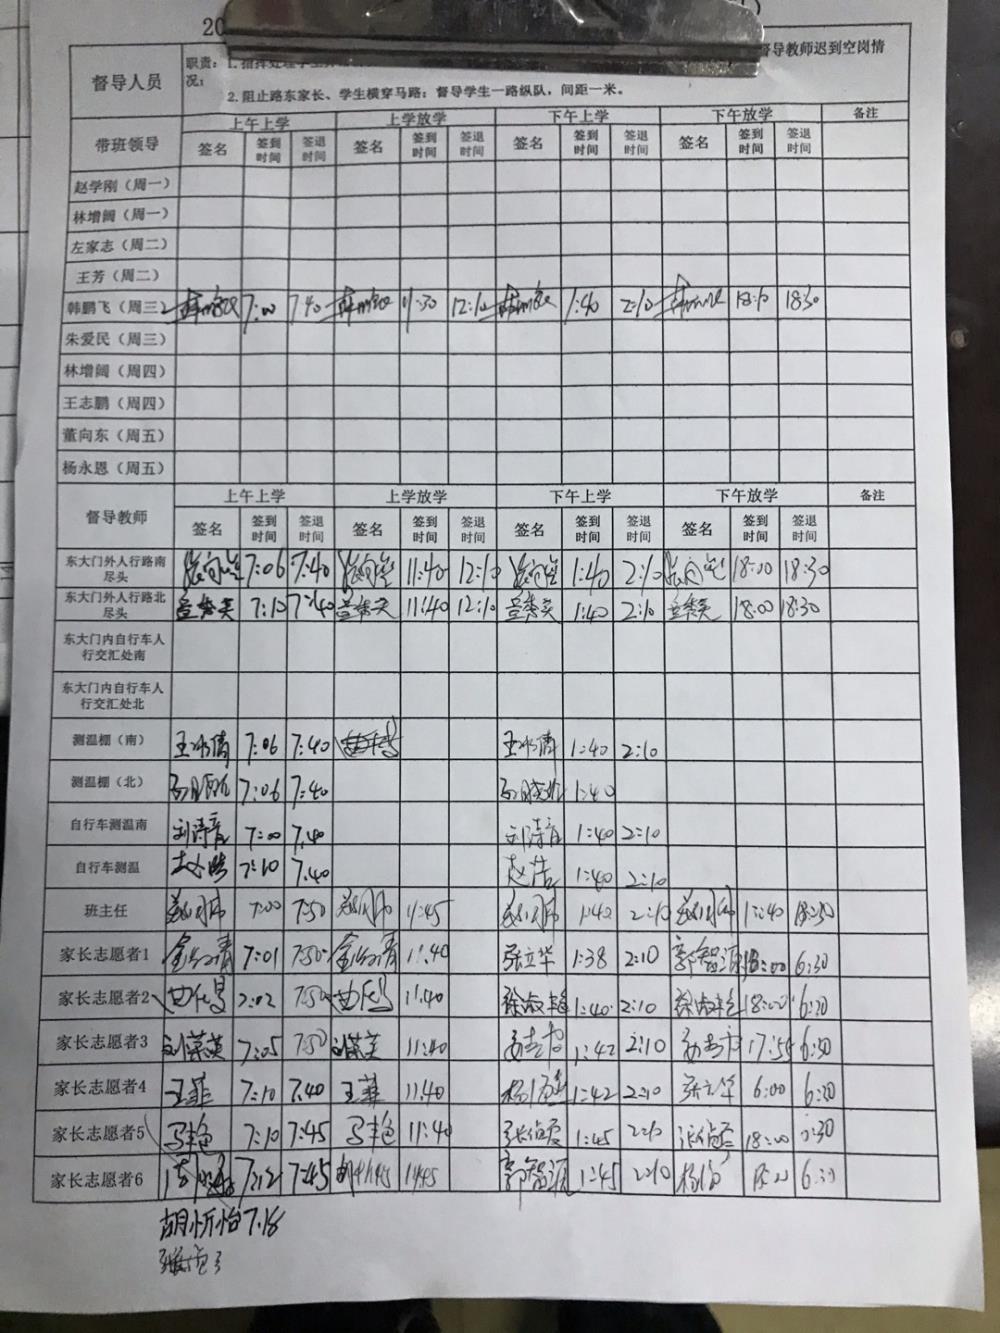 20
督导教师迟到空岗情
督导人员
职责：1.指挥处理学生
况；
2.阻止路东家长、学生横穿马路；督导学生一路纵队，间距一米。
带班领导 上午上学 上学放学 下午上学 下午放学 备注
签名 签到时间 签退时间 签名 签到时间 签退时间 签名 签到时间 签退时间 签名 签到时间 签退时间
赵学刚（周一）
林增阔（周一）
左家志（周二）
王芳（周二）
韩鹏飞（周三） 7:00 7:40 11:30 12:10 1:40 2:10 18:10 18:30
朱爱民（周三）
林增阔（周四）
王志鹏（周四）
董向东（周五）
杨永恩（周五）
督导教师 上午上学 上学放学 下午上学 下午放学 备注
签名 签到时间 签退时间 签名 签到时间 签退时间 签名 签到时间 签退时间 签名 签到时间 签退时间
东大门外人行路南尽头 7:06 7:40 11:40 12:10 1:40 2:10 18:00 18:30
东大门外人行路北尽头 7:10 7:40 11:40 12:10 1:40 2:10 18:00 18:30
东大门内自行车人行交汇处南
东大门内自行车人行交汇处北
测温棚（南） 王冰倩 7:06 7:40 王冰倩 1:40 2:10
测温棚（北） 7:06 7:40 1:40
自行车测温南 刘诗音 7:00 7.40 刘诗音 1:40 2:10
自行车测温 赵浩 7:10 7.40 赵浩 1:40 2:10
班主任 7:00 7:50 11:45 1:40 2:10 17:40 18:30
家长志愿者1 金红青 7:01 7:50 金红青 11.40 张立华 1:38 2:10 郭智源 18:00 6:30
家长志愿者2 7:02 7:50 11.40 徐淑艳 1:40 2:10 徐淑艳 18:00 6:30
家长志愿者3 刘荣英 7:05 7:50 刘荣英 11:40 1:42 2:10 17:55 6:30
家长志愿者4 王菲 7:10 7.40 王菲 11.40 1:42 2:10 张立华 6:00 6:30
家长志愿者5 马丰艳 7:10 7:45 马丰艳 11:40 1:45 2:10 18:00
家长志愿者6 7:12 7:45 11:45 郭智源 1:45 2:10 6:30
胡忻怡 7.18